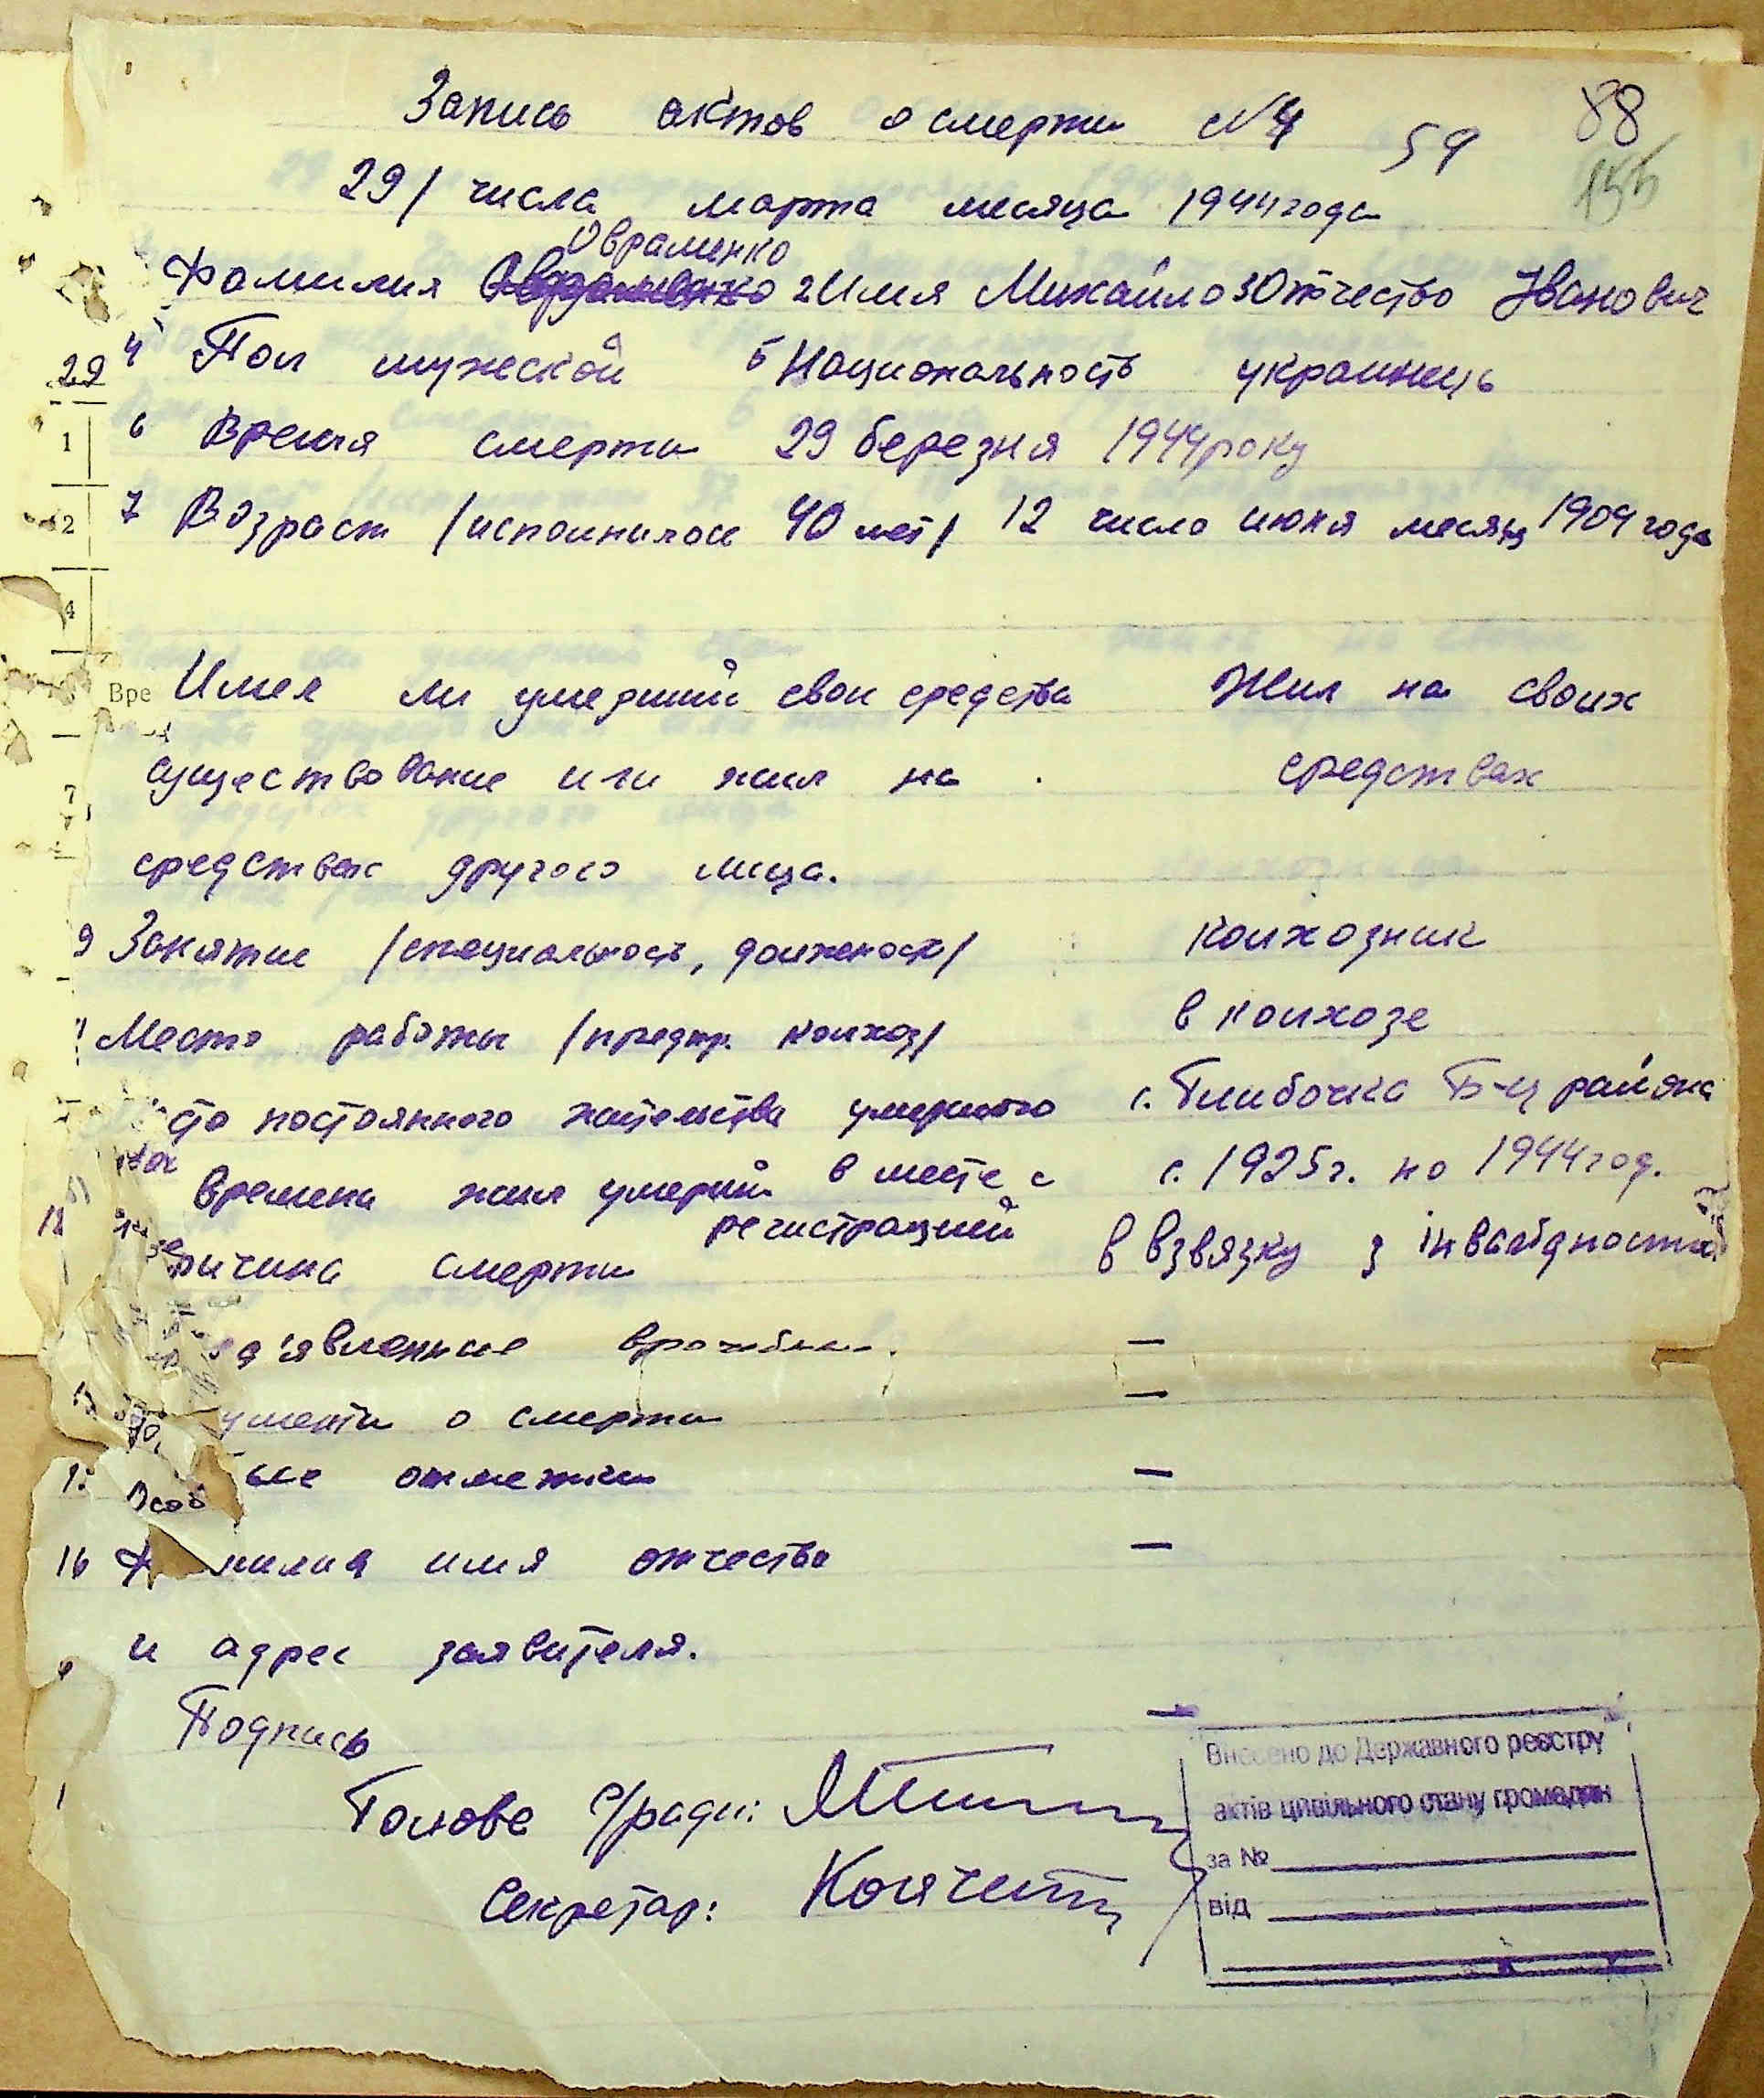 Запись актов о смерти №4 59 88
29/ числа марта месяца 1944 года
Овраменко
Фамилия 2 Имя Михайло 3 Отчество Іванович
4 Пол мужеской 5 Национальность украинець
22
6 Время смерти 29 березня 1944 року
1
7 Возраст /исполнилос 40 лет/ 12 число июня месяц 1904 года
2
4
Вре Имел ли умерший свои средства Жил на своих
существование или жил на средствах
7
средствах другого лица.
9 Занятие /специальность, должность/ колхозник
Место работы /предпр. колхоз/ в колхозе
сто постоянного жительства умершого с. Глибочка Б-Ц района
времени жил умерший в месте с с. 1925 г. по 1944 год.
регистраций
ричина смерти в взвязку з інвалідностю
д'явленние врачебн.
ументи о смерти
Особ ые отметки
16 Ф милия имя отчество
и адрес заявителя.
Подпись
Внесено до Державного реєстру
актів цивільного стану громадян
Голова с/ради:
за №
Секретар:
від